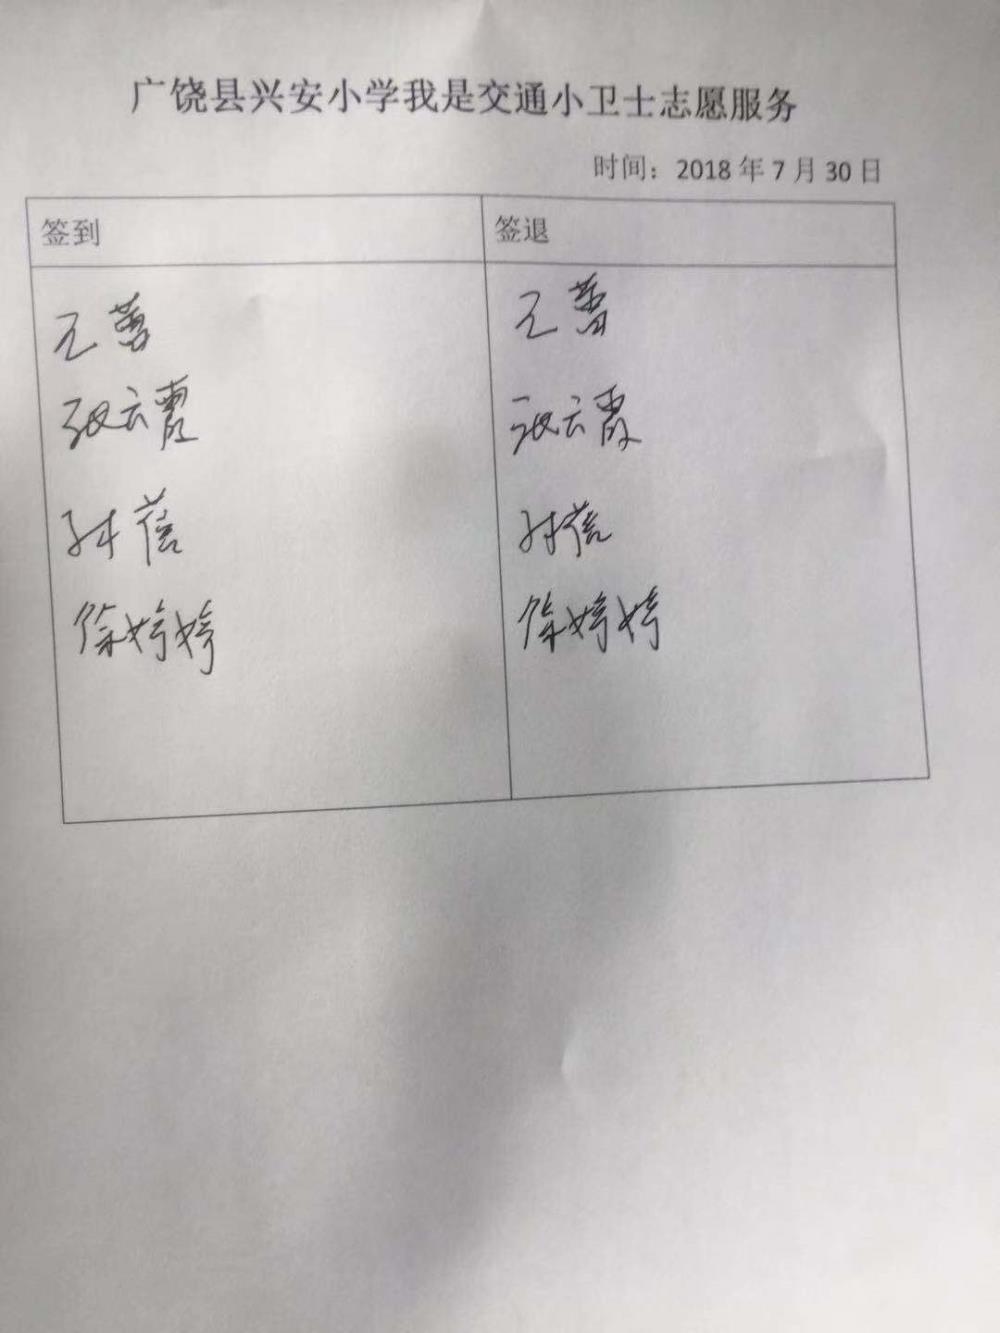 广饶县兴安小学我是交通小卫士志愿服务
时间：2018 年 7 月 30 日
签到 签退
张云霞 张云霞
孙蓓 孙蓓
徐婷婷 徐婷婷